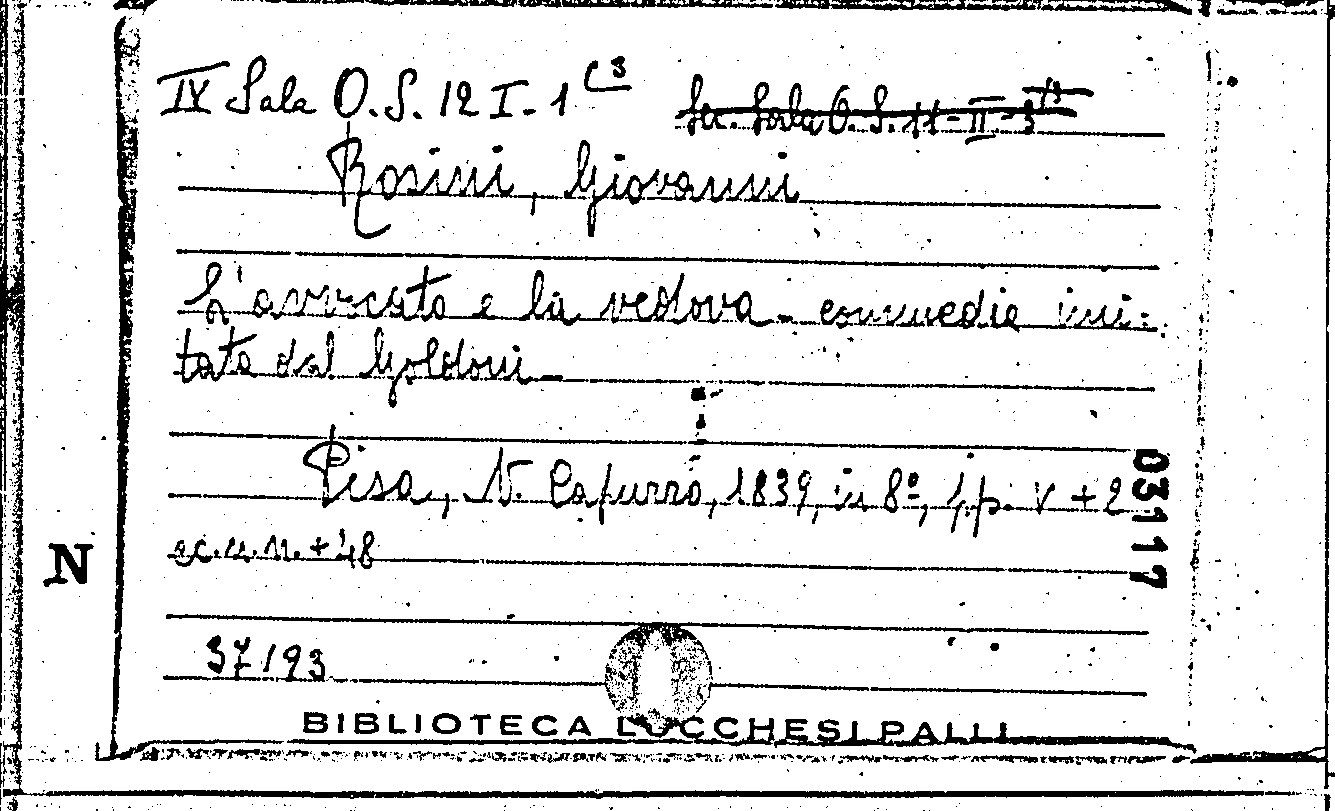 IV Sala O.S. 12 I-1 (3
Sec. Sala O.S. 11-II-3
Rosini, Giovanni
L'avvocato e la vedova - commedia imi-
tata dal Goldoni -
Pisa, N. Capurro, 1839, in 8º, pp. V + 2
cc.n.n. + 48
03117
N
37193
BIBLIOTECA LUCCHESI PALLI